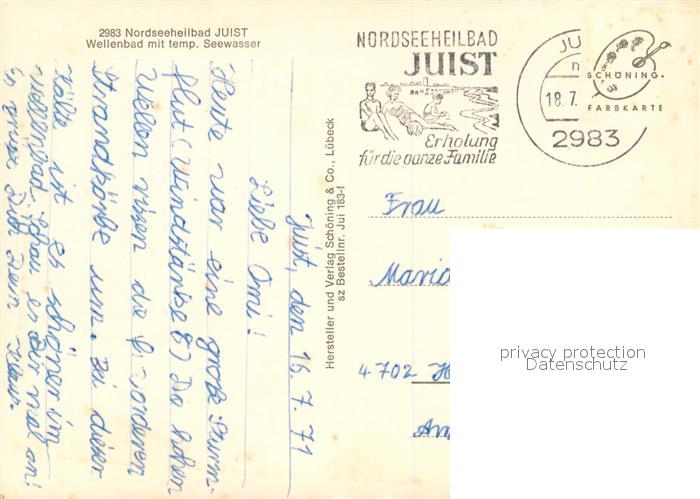 2983 Nordseeheilbad JUIST
Wellenbad mit temp. Seewasser
Juist, den 16.7.71
Liebe Omi!
Heute war eine große Sturm-
flut (Windstärke 8) Die hohen
Wellen rissen die vorderen
Strandkörbe um. Bei dieser
Kälte ist es schöner im
Wellenbad. Schau es Dir mal an!
Es grüßt Dich Dein Klaus.
Hersteller und Verlag Schöning & Co., Lübeck
sz Bestellnr. Jui 183-f
NORDSEEHEILBAD
JUIST
Erholung
für die ganze Familie
JU
18.7.
2983
SCHÖNING
FARBKARTE
Frau
Maria
4702
Am
privacy protection
Datenschutz